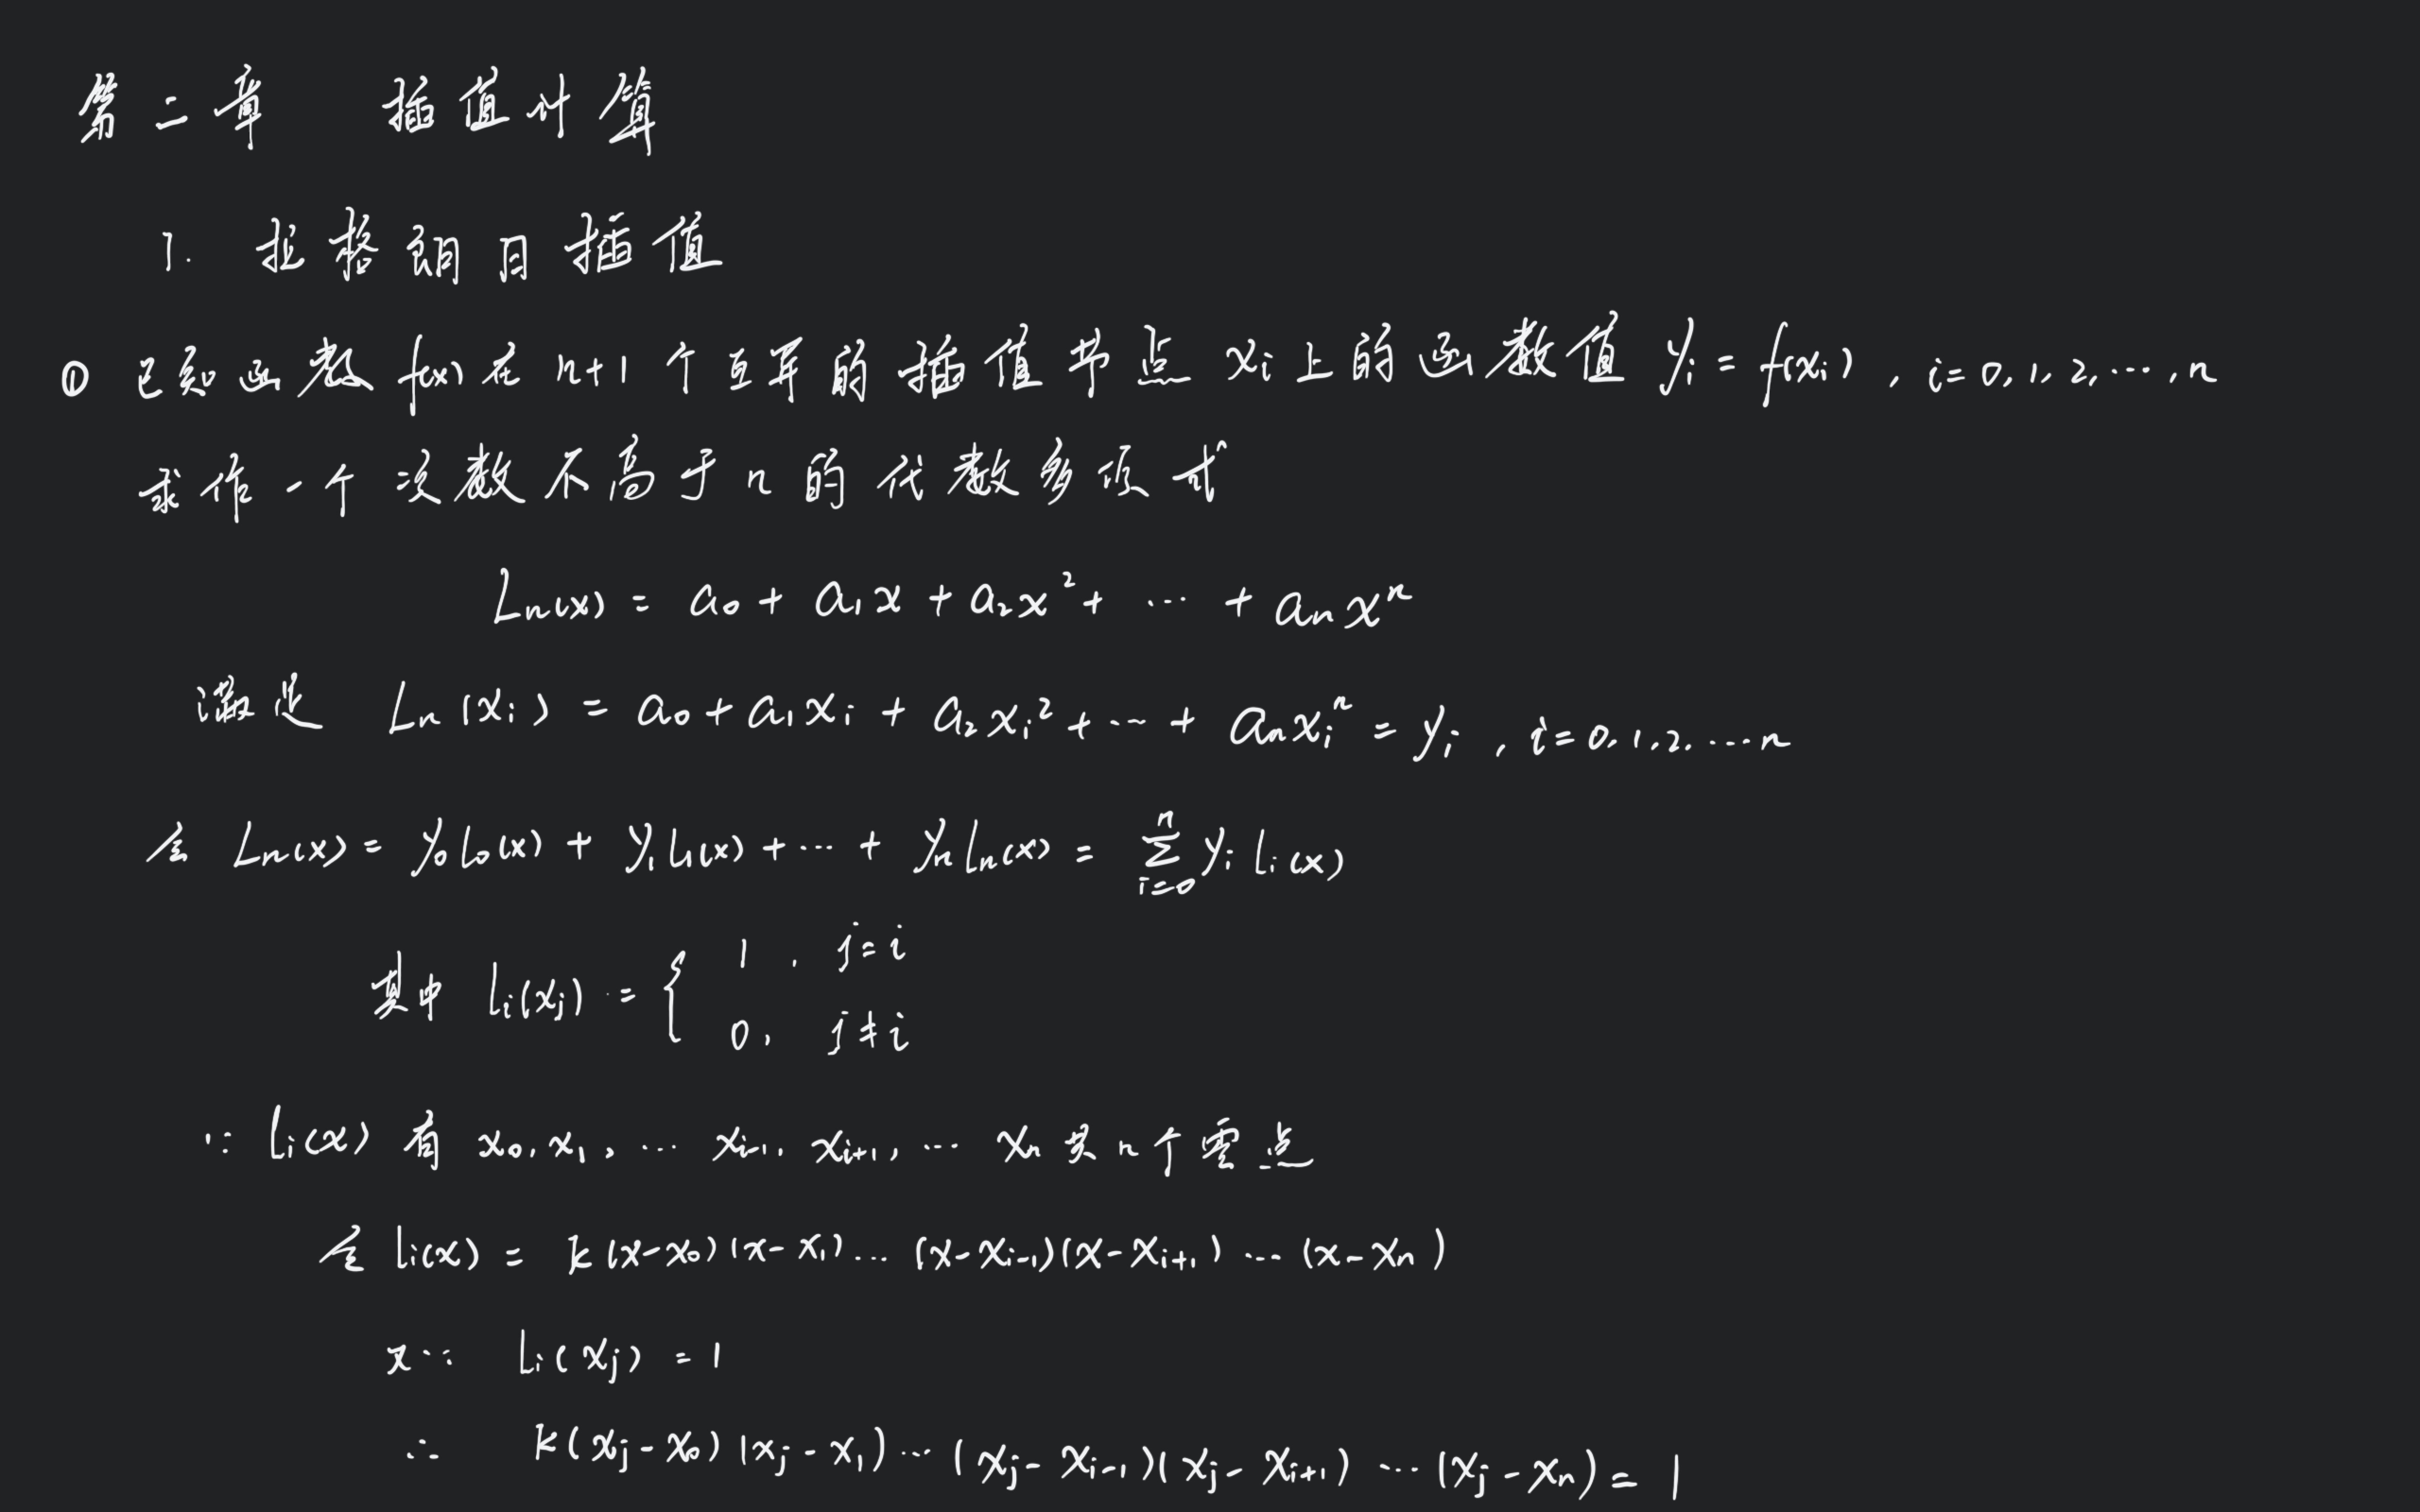 第二章 插值计算
1. 拉格朗日插值
① 已知函数 f(x) 在 n+1 个互异的插值节点 xᵢ 上的函数值 yᵢ = f(xᵢ), i=0,1,2,…,n
求作一个次数不高于n的代数多项式
Lₙ(x) = a₀ + a₁x + a₂x² + … + aₙxⁿ
满足 Lₙ(xᵢ) = a₀ + a₁xᵢ + a₂xᵢ² + … + aₙxᵢⁿ = yᵢ, i=0,1,2,…n
令 Lₙ(x) = y₀l₀(x) + y₁l₁(x) + … + yₙlₙ(x) = ∑ᵢ₌₀ⁿ yᵢlᵢ(x)
其中 lᵢ(xⱼ) = { 1, j=i
0, j≠i
∵ lᵢ(x) 有 x₀, x₁, … xᵢ₋₁, xᵢ₊₁, … xₙ 共n个零点
令 lᵢ(x) = k(x-x₀)(x-x₁)…(x-xᵢ₋₁)(x-xᵢ₊₁)…(x-xₙ)
又∵ lᵢ(xⱼ) = 1
∴ k(xⱼ-x₀)(xⱼ-x₁)…(xⱼ-xᵢ₋₁)(xⱼ-xᵢ₊₁)…(xⱼ-xₙ) = 1